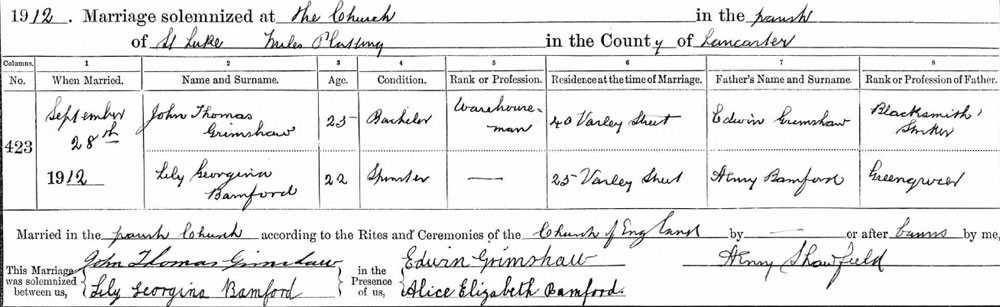 1912. Marriage solemnized at The Church in the parish
of St Luke Miles Platting in the County of Lancaster
Columns. 1 2 3 4 5 6 7 8
No. When Married. Name and Surname. Age. Condition. Rank or Profession. Residence at the time of Marriage. Father's Name and Surname. Rank or Profession of Father.
423
September 28th 1912
John Thomas Grimshaw 23 Bachelor Warehouse-man 40 Varley Street Edwin Grimshaw Blacksmith's Striker
Lily Georgina Bamford 22 Spinster — 25 Varley Street Henry Bamford Greengrocer
Married in the parish Church according to the Rites and Ceremonies of the Church of England by — or after banns by me,
This Marriage was solemnized between us, John Thomas Grimshaw Lily Georgina Bamford in the Presence of us, Edwin Grimshaw Alice Elizabeth Bamford. Henry